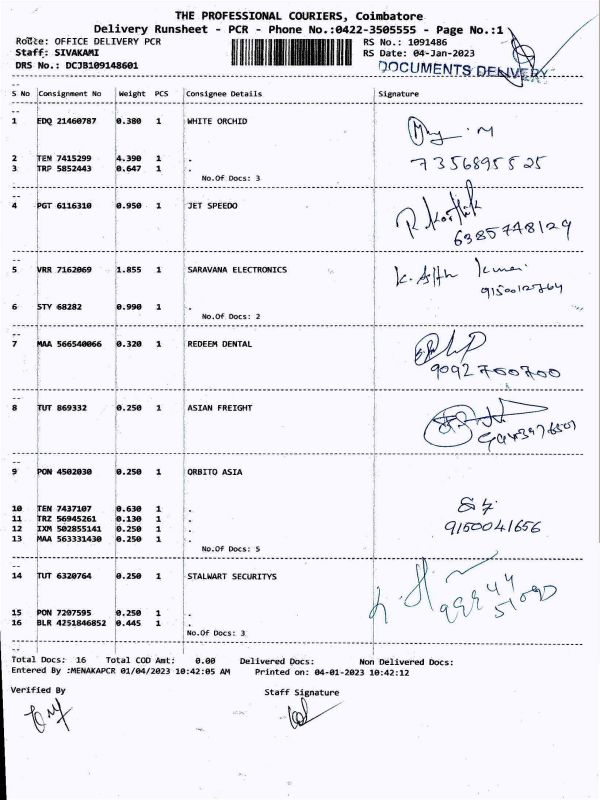 THE PROFESSIONAL COURIERS, Coimbatore
Delivery Runsheet - PCR - Phone No.:0422-3505555 - Page No.:1
Route: OFFICE DELIVERY PCR RS No.: 1091486
Staff: SIVAKAMI RS Date: 04-Jan-2023
DRS No.: DCJB109148601 DOCUMENTS DELIVERY
S No Consignment No Weight PCS Consignee Details Signature
1 EDQ 21460787 0.380 1 WHITE ORCHID
2 TEN 7415299 4.390 1 . 7356895525
3 TRP 5852443 0.647 1 .
No.Of Docs: 3
4 PGT 6116310 0.950 1 JET SPEEDO R. Karthik
6385748129
5 VRR 7162069 1.855 1 SARAVANA ELECTRONICS
9150012764
6 STY 68282 0.990 1 .
No.Of Docs: 2
7 MAA 566540066 0.320 1 REDEEM DENTAL
9092700700
8 TUT 869332 0.250 1 ASIAN FREIGHT
9 PON 4502030 0.250 1 ORBITO ASIA
10 TEN 7437107 0.630 1 .
11 TRZ 56945261 0.130 1 .
12 IXM 502855141 0.250 1 . 9150041656
13 MAA 563331430 0.250 1 .
No.Of Docs: 5
14 TUT 6320764 0.250 1 STALWART SECURITYS
15 PON 7207595 0.250 1 .
16 BLR 4251846852 0.445 1 .
No.Of Docs: 3
Total Docs: 16 Total COD Amt: 0.00 Delivered Docs: Non Delivered Docs:
Entered By :MENAKAPCR 01/04/2023 10:42:05 AM Printed on: 04-01-2023 10:42:12
Verified By Staff Signature